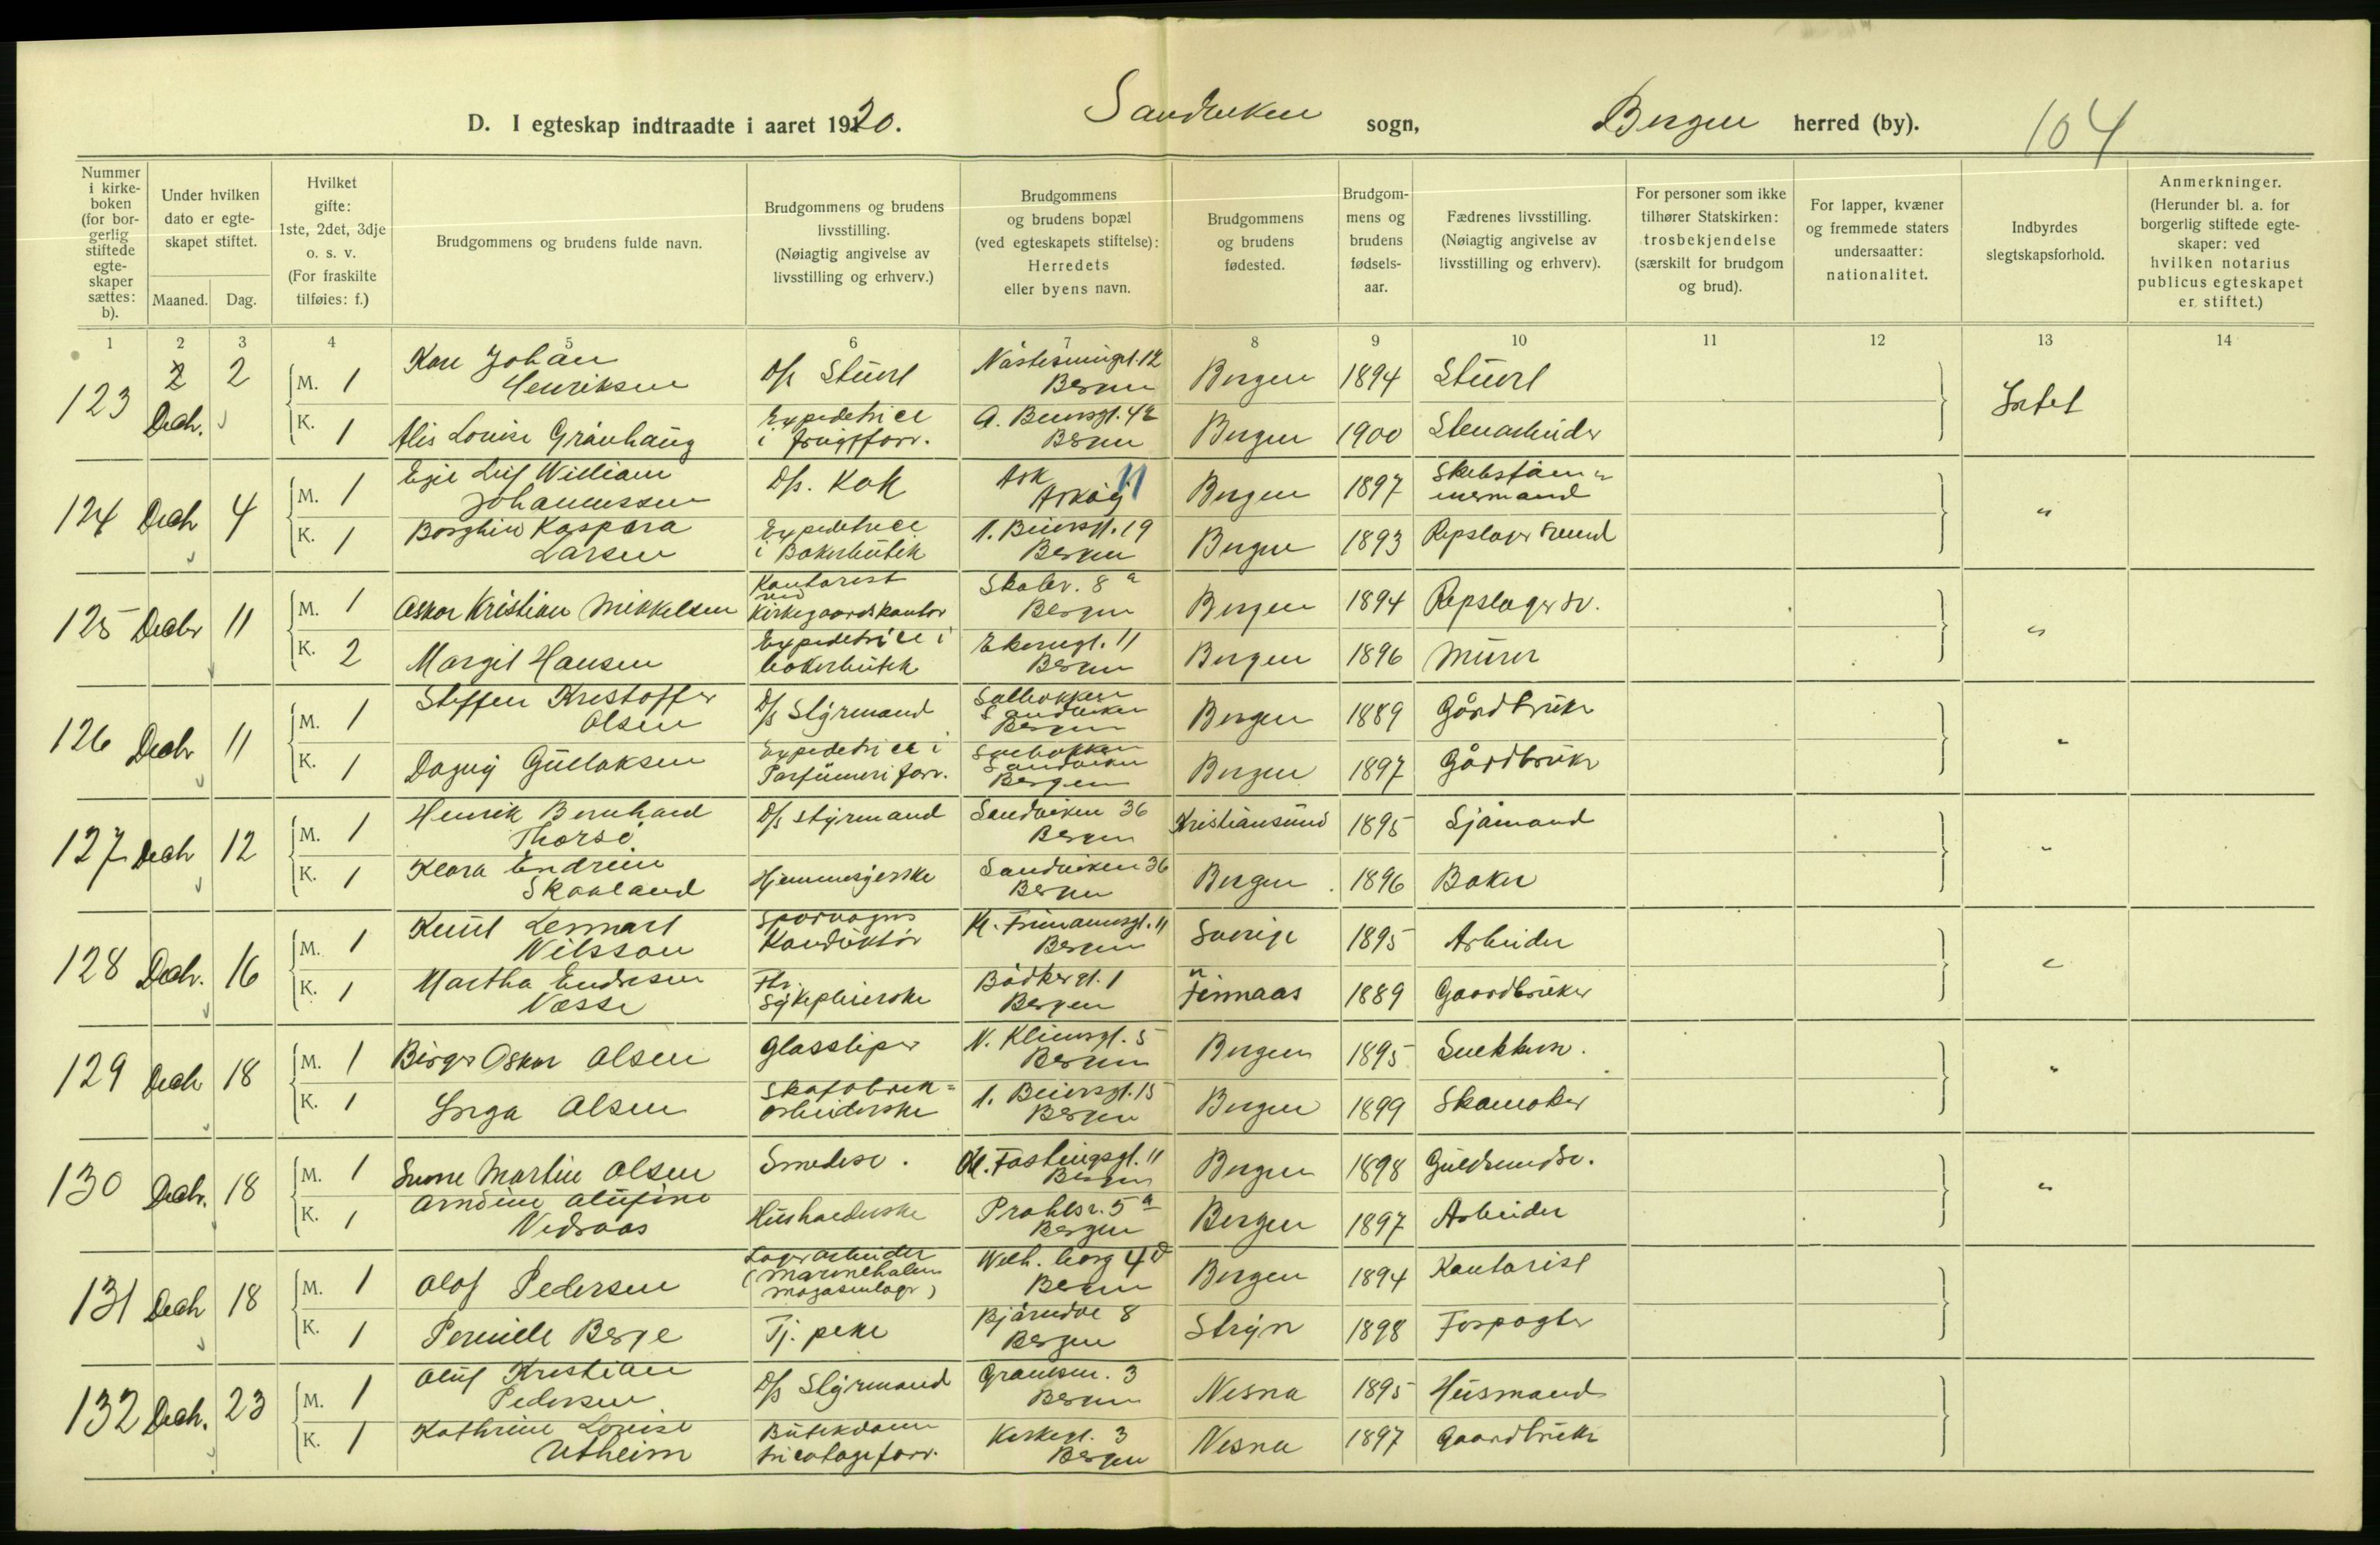 D. I egteskap indtraadte i aaret 1920. Sandviken sogn, Bergen herred (by). 104
Nummer i kirke-boken (for bor-gerlig stiftede egte-skaper sættes: b).
Under hvilken dato er egte-skapet stiftet.
Maaned. Dag.
Hvilket gifte: 1ste, 2det, 3dje o. s. v. (For fraskilte tilføies: f.)
Brudgommens og brudens fulde navn.
Brudgommens og brudens livsstilling. (Nøiagtig angivelse av livsstilling og erhverv.)
Brudgommens og brudens bopæl (ved egteskapets stiftelse): Herredets eller byens navn.
Brudgommens og brudens fødested.
Brudgom-mens og brudens fødsels-aar.
Fædrenes livsstilling. (Nøiagtig angivelse av livsstilling og erhverv).
For personer som ikke tilhører Statskirken: trosbekjendelse (særskilt for brudgom og brud).
For lapper, kvæner og fremmede staters undersaatter: nationalitet.
Indbyrdes slegtskapsforhold.
Anmerkninger. (Herunder bl. a. for borgerlig stiftede egte-skaper: ved hvilken notarius publicus egteskapet er stiftet.)
1 2 3 4 5 6 7 8 9 10 11 12 13 14
123 Decbr. 2 M. 1 Johan Henriksen D/s Stuert Bergen Bergen 1894 Stuert Intet
K. 1 Louise Expeditrice i Bergen Bergen 1900 Stenarbeider
124 Decbr 4 M. 1 Leif William Johannessen D/s. Kok Ask Askøy 11 Bergen 1897
K. 1 Kaspara Larsen Expeditrice i Bakerbutik 1. Beiersgt. 19 Bergen Bergen 1893 Repslager "
125 Decbr 11 M. 1 Oskar Kristian Mikkelsen Kontorist ved Kirkegaardskontor Skolev. 8 a Bergen Bergen 1894 Repslagersv.
K. 2 Margit Hansen Expeditrice i bakerbutik Ekrengt. 11 Bergen Bergen 1896 Murer "
126 Decbr 11 M. 1 Steffen Kristoffer Olsen D/s Styrmand Sandviken Bergen Bergen 1889 Gårdbruker
K. 1 Dagny Gullaksen Expeditrice i Parfümeriforr. Sandviken Bergen Bergen 1897 Gårdbruker "
127 Decbr 12 M. 1 Henrik Bernhard D/s styrmand Sandviken 36 Bergen Kristiansund 1895 Sjømand
K. 1 Klara Skaaland Hjemmesyerske Sandviken 36 Bergen Bergen 1896 Baker "
128 Decbr. 16 M. 1 Knut Lennart Nilsson Sporvogns Konduktør Bergen Sverige 1895 Arbeider
K. 1 Martha Endresen Næsse Sykepleierske Bødkergt. 1 Bergen Finnaas 1889 Gaardbruker "
129 Decbr 18 M. 1 Birger Oskar Olsen Glassliper N. Klimsgt. 5 Bergen Bergen 1895 Snekker.
K. 1 Inga Olsen Skofabrik=arbeiderske 1. Beiersgt. 15 Bergen Bergen 1899 Skomaker "
130 Decbr. 18 M. 1 Martin Olsen Smedesv. Kl. Fastingsgt. 11 Bergen Bergen 1898 Guldsmedsv.
K. 1 Vedraas Husholderske 5 a Bergen Bergen 1897 Arbeider "
131 Decbr 18 M. 1 Olaf Pedersen Lagerarbeider (Marineholms magasinlager) Wilh. berg 4 d Bergen Bergen 1894 Kontorist
K. 1 Pernille Berge Tj. pike 8 Bergen Stryn 1898 Forpagter
132 Decbr. 23 M. 1 Oluf Kristian Pedersen D/s Styrmand 3 Bergen Nesna 1895 Husmand
K. 1 Kathrine Louise Utheim Butikdame tricotageforr. Kirkegt. 3 Bergen Nesna 1897 Gaardbruker